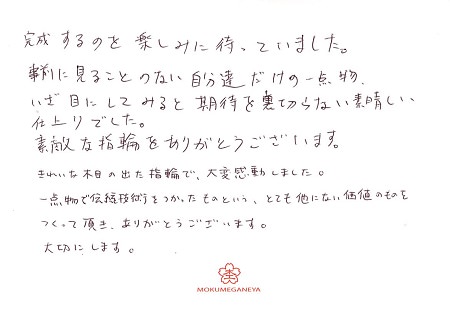 完成するのを楽しみに待っていました。
事前に見ることのない自分達だけの一点物、
いざ目にしてみると期待を裏切らない素晴しい
仕上りでした。
素敵な指輪をありがとうございます。
きれいな木目の出た指輪で、大変感動しました。
一点物で伝統技術をつかったものという、とても他にない価値のものを
つくって頂き、ありがとうございます。
大切にします。
MOKUMEGANEYA